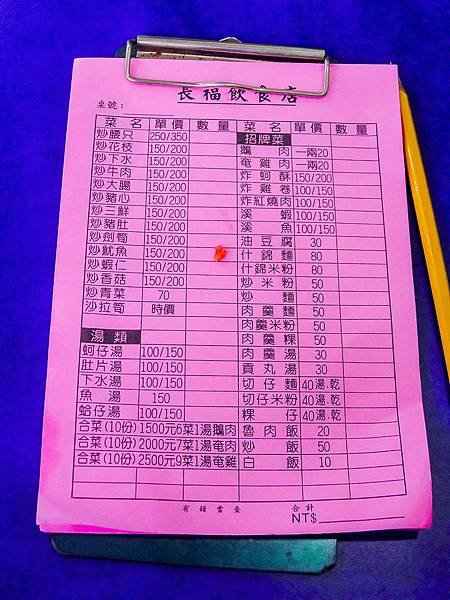 長福飲食店
桌號：
菜名 單價 數量 菜名 單價 數量
炒腰只 250/350 招牌菜
炒花枝 150/200 鵝肉 一兩20
炒下水 150/200 奄雞肉 一兩20
炒牛肉 150/200 炸蚵酥 150/200
炒大腸 150/200 炸雞卷 100/150
炒豬心 150/200 炸紅燒肉 100/150
炒三鮮 150/200 溪蝦 100/150
炒豬肚 150/200 溪魚 100/150
炒劍筍 150/200 油豆腐 30
炒魷魚 150/200 什錦麵 80
炒蝦仁 150/200 什錦米粉 80
炒香菇 150/200 炒米粉 50
炒青菜 70 炒麵 50
沙拉筍 時價 肉羹麵 50
肉羹米粉 50
湯類 肉羹粿 50
蚵仔湯 100/150 肉羹湯 30
肚片湯 100/150 貢丸湯 30
下水湯 100/150 切仔麵 40湯.乾
魚湯 150 切仔米粉 40湯.乾
蛤仔湯 100/150 粿仔 40湯.乾
合菜(10份)1500元6菜1湯鵝肉 魯肉飯 20
合菜(10份)2000元7菜1湯奄肉 炒飯 50
合菜(10份)2500元9菜1湯奄雞 白飯 10
有錯當查 合計
NT$